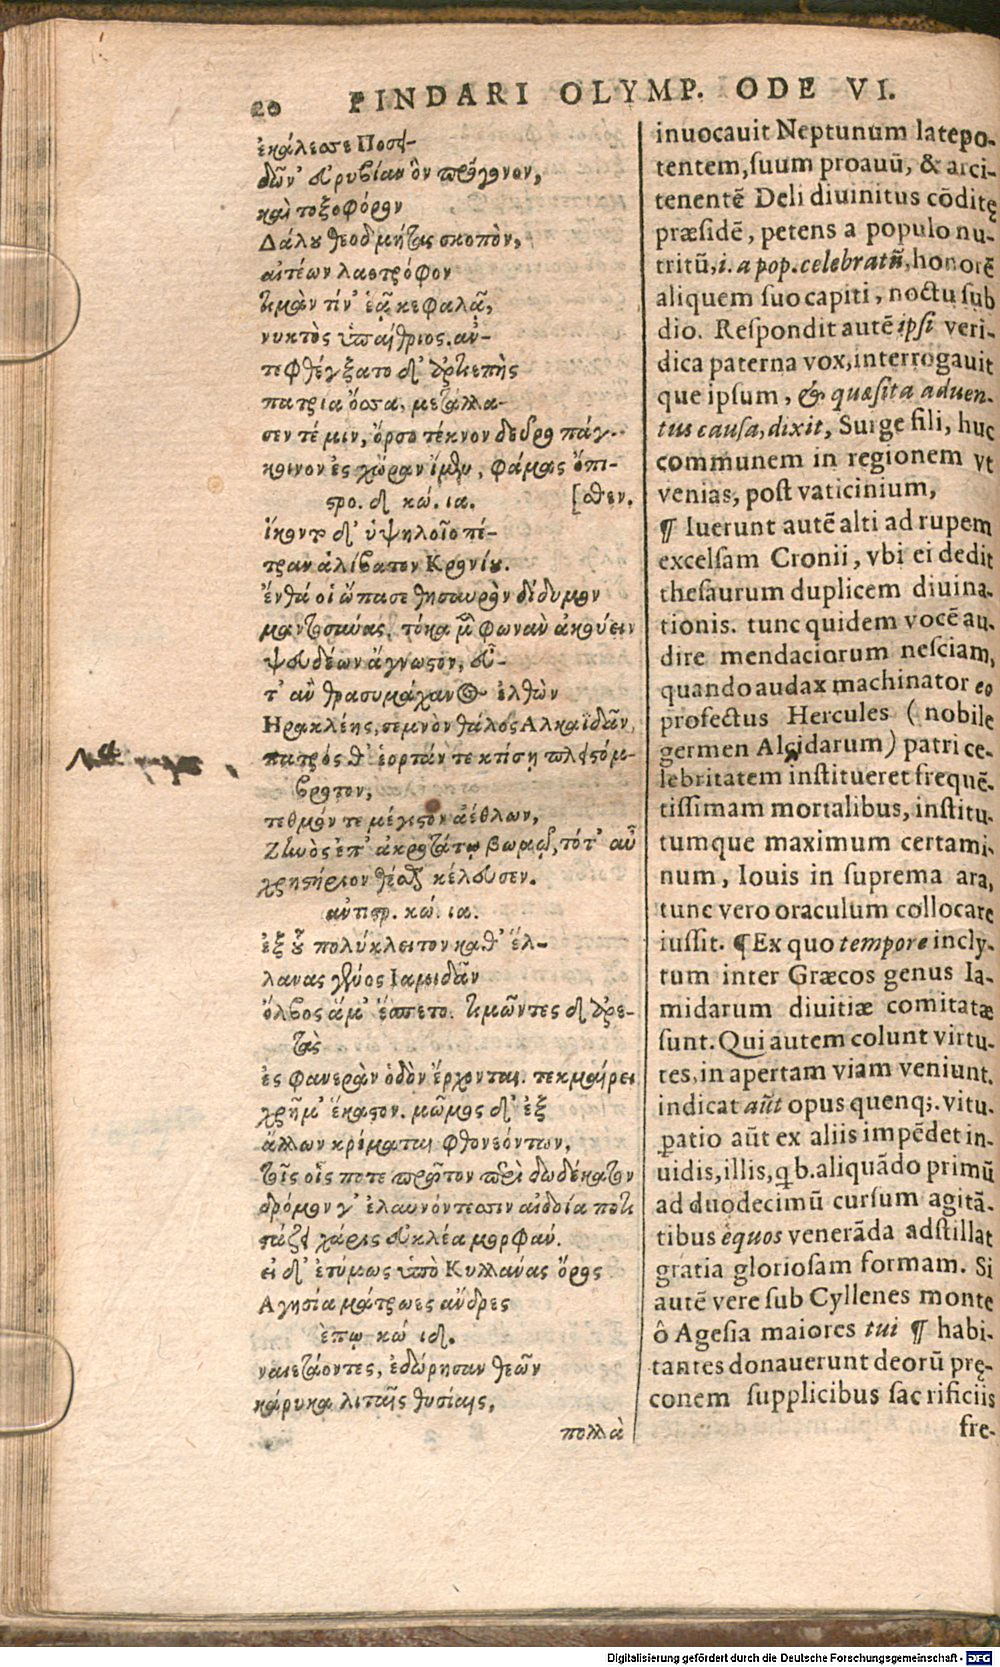 20 PINDARI OLYMP. ODE VI.
ἐκάλεσσε Ποσει-
δᾶν' εὐρυβίαν ὃν πρόγονον,
καὶ τοξοφόρον
Δάλου θεοδμήτας σκοπὸν,
αἰτέων λαοτρόφον
τιμὰν τίν' ἑᾷ κεφαλᾷ,
νυκτὸς ὑπαίθριος. ἀν-
τεφθέγξατο δ' ἀρτιεπὴς
πατρία ὄσσα, μετάλλα-
σεν τέ μιν, ὄρσο τέκνον δεῦρο πάγ-
κοινον ἐς χώραν ἴμεν, φάμας ὄπι-
στρο. δ κώ. ια. [σθεν.
ἵκοντο δ' ὑψηλοῖο πέ-
τραν ἀλίβατον Κρονίου.
ἔνθά οἱ ὤπασε θησαυρὸν δίδυμον
μαντοσύνας, τόκα μὲν φωνὰν ἀκούειν
ψευδέων ἄγνωστον, εὖ-
τ' ἂν θρασυμάχανος ἐλθὼν
Ηρακλέης, σεμνὸν θάλος Αλκαϊδᾶν,
πατρός θ' ἑορτάν τε κτίσῃ πλειστόμ-
βροτον,
τεθμόν τε μέγιστον ἀέθλων,
Ζηνὸς ἐπ' ἀκροτάτῳ βωμῷ, τότ' αὖ
χρηστήριον θέσθαι κέλευσεν.
ἀντιστρ. κώ. ια.
ἐξ οὗ πολύκλειτον καθ' ἕλ-
λανας γένος Ιαμιδᾶν
ὄλβος ἅμ' ἕσπετο. τιμῶντες δ' ἀρε-
τὰς
ἐς φανερὰν ὁδὸν ἔρχονται. τεκμαίρει
χρῆμ' ἕκαστον. μῶμος δ' ἐξ
ἄλλων κρέμαται φθονεόντων,
τοῖς οἷς ποτε πρῶτον περὶ δωδέκατον
δρόμον γ' ἐλαυνόντεσσιν αἰδοία ποτι
στάζει χάρις εὐκλέα μορφάν.
εἰ δ' ἐτύμως ὑπὸ Κυλλάνας ὄρος
Αγησία μάτρωες ἄνδρες
ἐπῳ κώ ιδ.
ναιετάοντες, ἐδώρησαν θεῶν
κάρυκα λιταῖς θυσίαις,
πολλὰ
inuocauit Neptunum latepo-
tentem, suum proauũ, & arci-
tenentẽ Deli diuinitus cõditę
præsidẽ, petens a populo nu-
tritũ, i. a pop. celebratũ, honorẽ
aliquem suo capiti, noctu sub
dio. Respondit autẽ ipsi veri-
dica paterna vox, interrogauit
que ipsum, & quæsita aduen-
tus causa, dixit, Surge fili, huc
communem in regionem vt
venias, post vaticinium,
¶ Iuerunt autẽ alti ad rupem
excelsam Cronii, vbi ei dedit
thesaurum duplicem diuina-
tionis. tunc quidem vocẽ au-
dire mendaciorum nesciam,
quando audax machinator eo
profectus Hercules ( nobile
germen Alcidarum) patri ce-
lebritatem institueret frequẽ-
tissimam mortalibus, institu-
tumque maximum certami-
num, Iouis in suprema ara,
tunc vero oraculum collocare
iussit. ¶ Ex quo tempore incly-
tum inter Græcos genus Ia-
midarum diuitiæ comitatæ
sunt. Qui autem colunt virtu-
tes, in apertam viam veniunt.
indicat aũt opus quenq;. vitu-
ꝑatio aũt ex aliis impẽdet in-
uidis, illis, q b. aliquãdo primũ
ad duodecimũ cursum agitã-
tibus equos venerãda adstillat
gratia gloriosam formam. Si
autẽ vere sub Cyllenes monte
ô Agesia maiores tui ¶ habi-
tantes donauerunt deorũ pręconem supplicibus sacrificiis
fre-
Digitalisierung gefördert durch die Deutsche Forschungsgemeinschaft - DFG